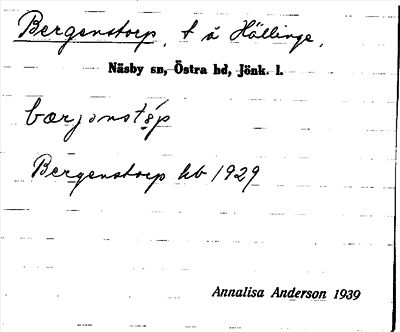 Bergenstorp, t å Hällinge,
Näsby sn, Östra hd, Jönk. l.
bærjanstɵ́rp
Bergenstorp hb 1929
Annalisa Anderson 1939